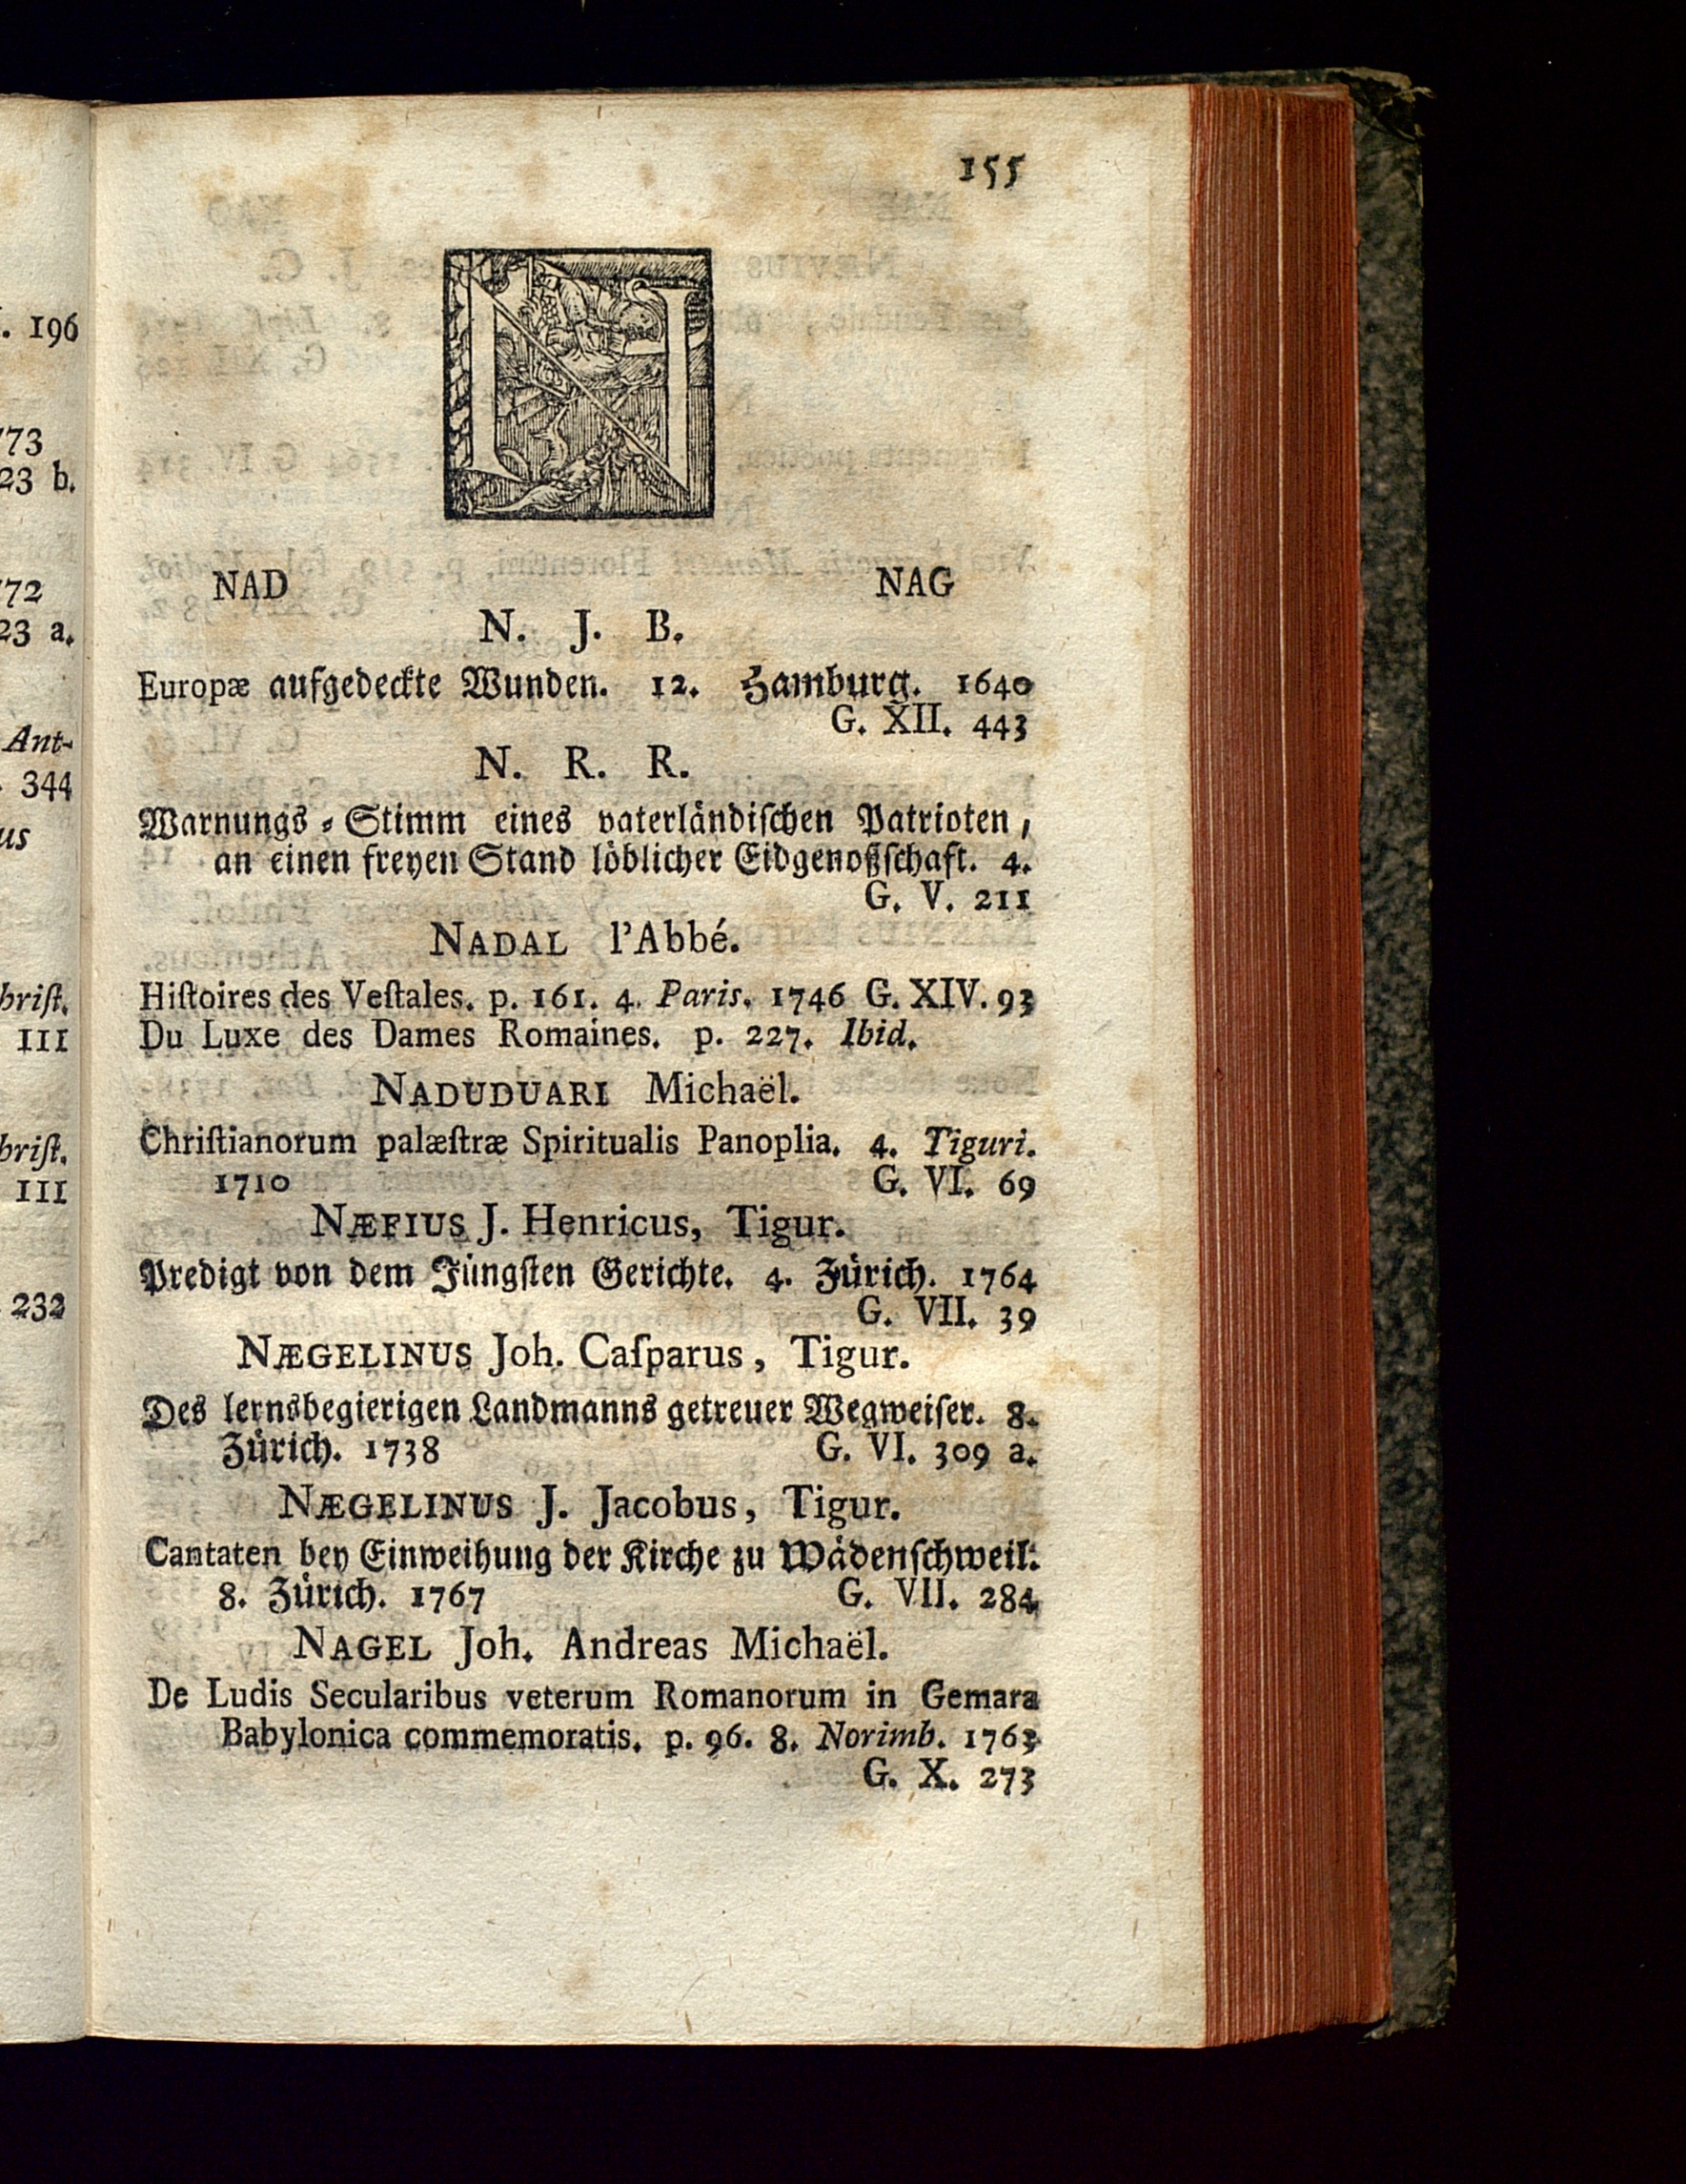 . 196
73
23 b.
72
23 a.
Ant-
344
us
hriſt.
III
hriſt.
III
232
155
N
NAD NAG
N. J. B.
Europæ aufgedeckte Wunden. 12. Hamburg. 1640
G. XII. 443
N. R. R.
Warnungs-Stimm eines vaterländiſchen Patrioten,
an einen freyen Stand löblicher Eidgenoßſchaft. 4.
G. V. 211
NADAL l'Abbé.
Hiſtoires des Veſtales. p. 161. 4. Paris. 1746 G. XIV. 93
Du Luxe des Dames Romaines. p. 227. Ibid.
NADUDUARI Michaël.
Chriſtianorum palæſtræ Spiritualis Panoplia. 4. Tiguri.
1710 G. VI. 69
NÆFIUS J. Henricus, Tigur.
Predigt von dem Jüngſten Gerichte. 4. Zürich. 1764
G. VII. 39
NÆGELINUS Joh. Caſparus, Tigur.
Des lernsbegierigen Landmanns getreuer Wegweiſer. 8.
Zürich. 1738 G. VI. 309 a.
NÆGELINUS J. Jacobus, Tigur.
Cantaten bey Einweihung der Kirche zu Wädenſchweil.
8. Zürich. 1767 G. VII. 284
NAGEL Joh. Andreas Michaël.
De Ludis Secularibus veterum Romanorum in Gemara
Babylonica commemoratis. p. 96. 8. Norimb. 1763
G. X. 273